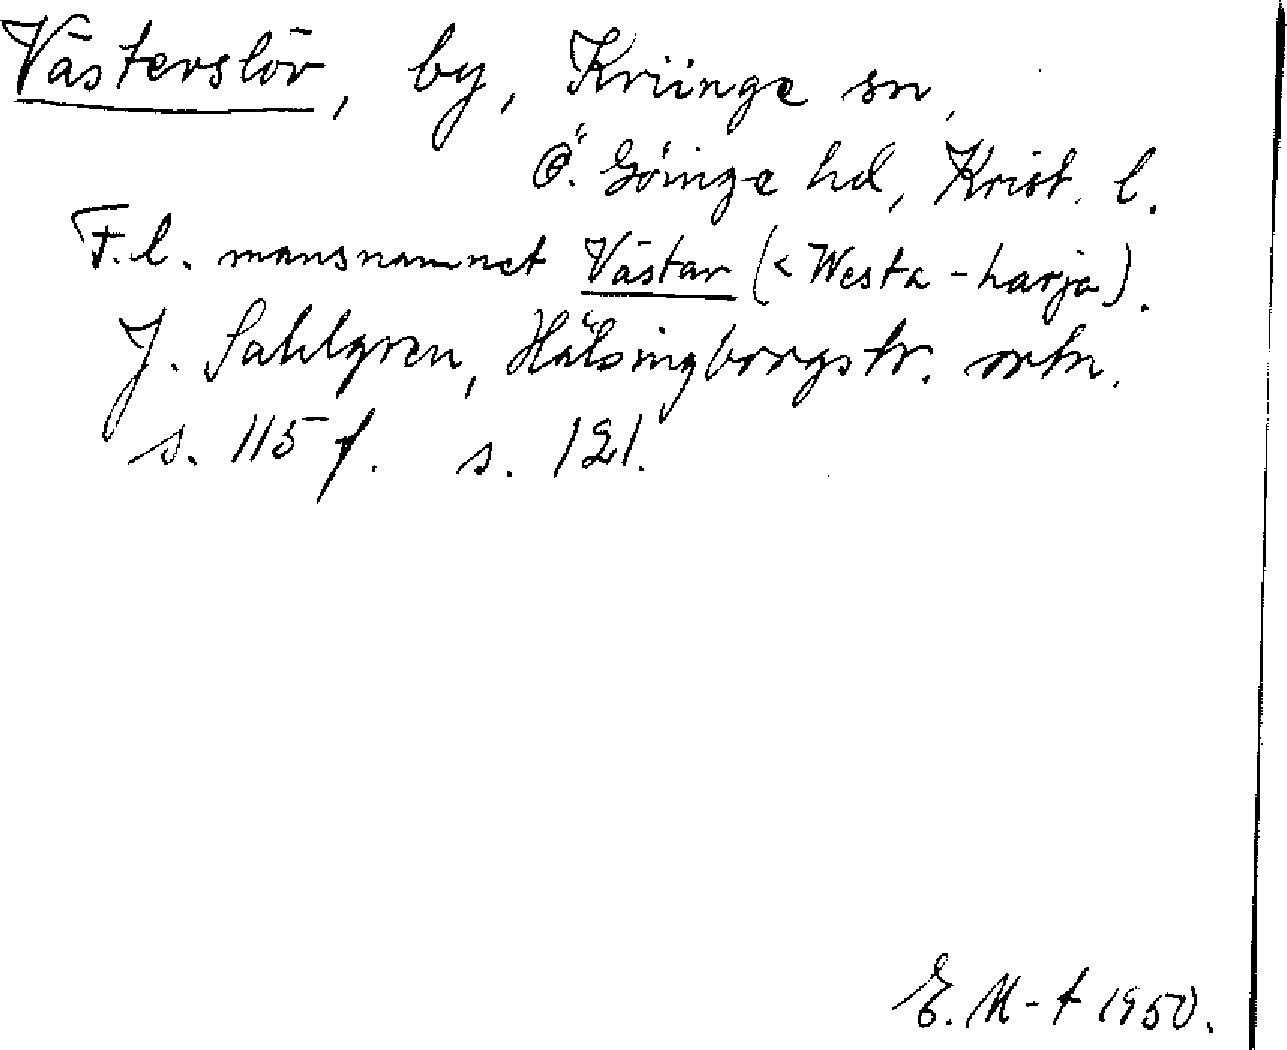 Västerslöv, by, Kviinge sn,
Ö. Göinge hd, Krist. l.
F.l. mansnamnet Västar (< Westa-harja).
J. Sahlgren, Hälsingborgstr. ortn.
s. 115 f. s. 121.
E. M-t 1950.